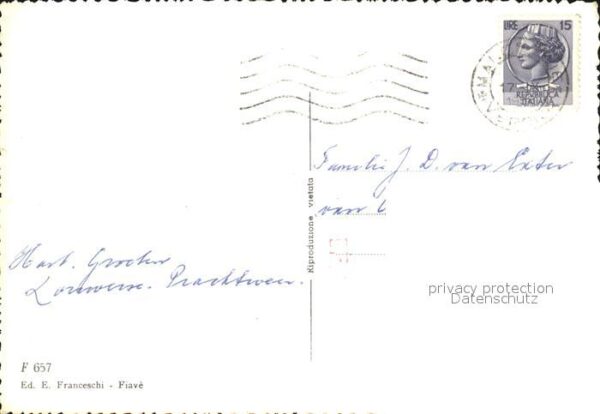 LIRE 15
REPUBBLICA
ITALIANA
Familie J. D. van Exter
van
Riproduzione vietata
Hart. Groeten
Louwerse. Prachtweer.
privacy protection
Datenschutz
F 657
Ed. E. Franceschi - Fiavè